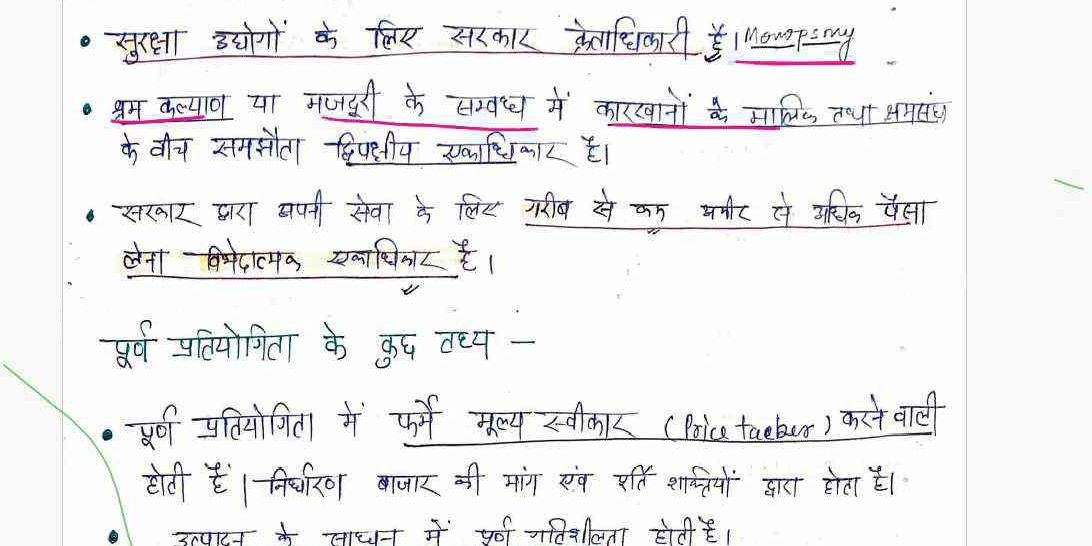 • सुरक्षा उद्योगों के लिए सरकार क्रेताधिकारी है। Monopsny
• श्रम कल्याण या मजदूरी के सम्वन्ध में कारखानों के मालिक तथा श्रमसंघ
के वीच समझौता द्विपक्षीय एकाधिकार है।
• सरकार द्वारा अपनी सेवा के लिए गरीब से कम अमीर से अधिक पैसा
लेना विभेदात्मक एकाधिकार है।
पूर्व प्रतियोगिता के कुछ तथ्य –
• पूर्ण प्रतियोगिता में फर्मे मूल्य स्वीकार (Price taeker) करने वाली
होती हैं। निर्धारण बाजार की मांग एंव पूर्ति शक्तियों द्वारा होता है।
• उत्पादन के साधन में पूर्ण गतिशीलता होती है।